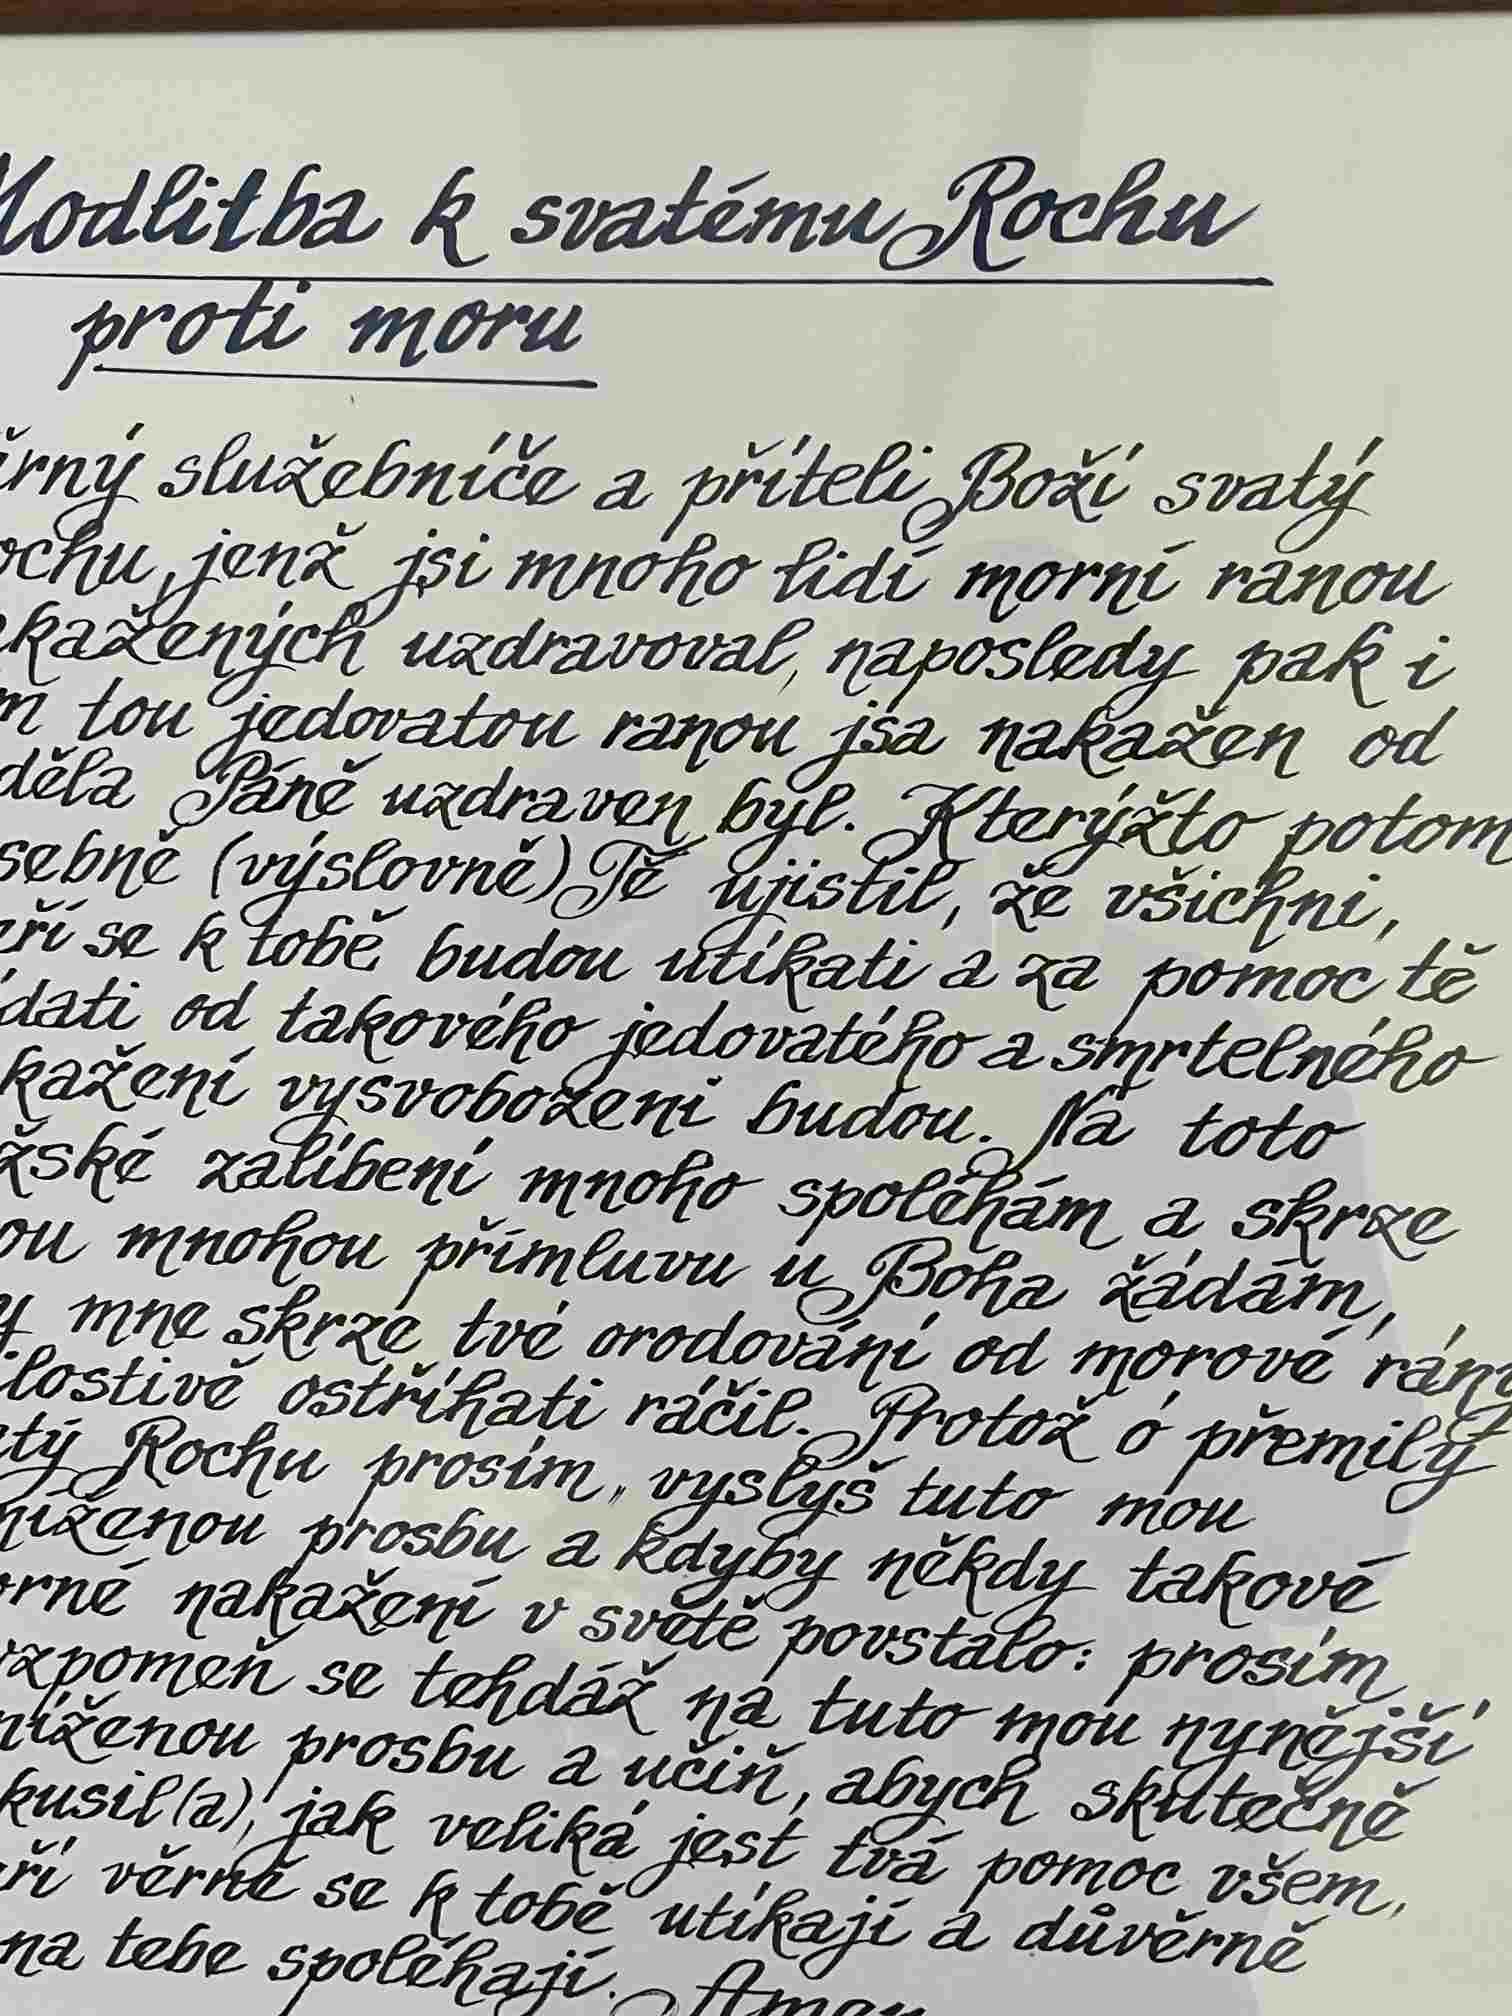 Modlitba k svatému Rochu
proti moru
služebníče a příteli Boží svatý
jenž jsi mnoho lidí morní ranou
uzdravoval, naposledy pak i
tou jedovatou ranou jsa nakažen od
Páně uzdraven byl. Kterýžto potom
(výslovně) Tě ujistil, že všichni,
se k tobě budou utíkati a za pomoc tě
od takového jedovatého a smrtelného
vysvobozeni budou. Na toto
zalíbení mnoho spoléhám a skrze
mnohou přímluvu u Boha žádám,
mne skrze tvé orodování od morové
ostříhati ráčil. Protož ó přemilý
Rochu prosím, vyslyš tuto mou
prosbu a kdyby někdy takové
nakažení v světě povstalo: prosím
vzpomeň se tehdáž na tuto mou nynější
prosbu a učiň, abych skutečně
jak veliká jest tvá pomoc všem,
věrně se k tobě utíkají a důvěrně
na tebe spoléhají. Amen